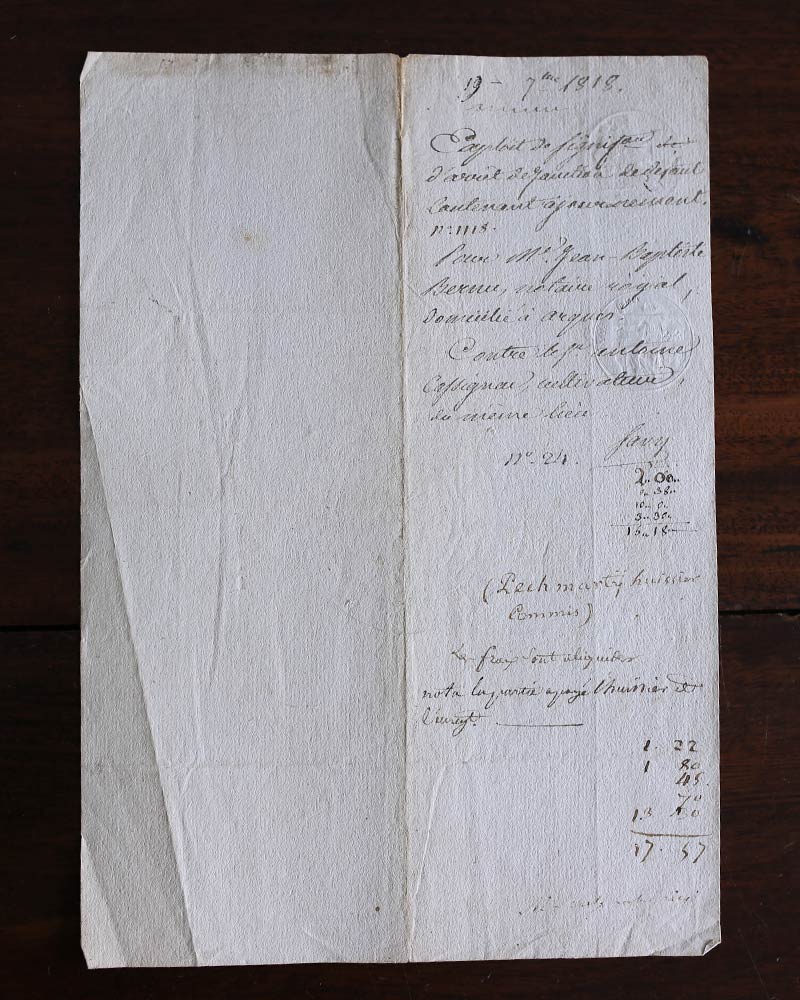 19 - 7bre 1818.
Exploit de signifon
d'arrêt de jonction de defaut
Contenant ajournement.
n° 1118.
Pour Me Jean-Baptiste
Bernu, notaire royal,
domicilié à arques,
Contre le Sr antoine
Cassignac, cultivateur,
du même lieu.
n° 24.
2.. 00..
0.. 38..
10.. 0..
3.. 30..
15.. 18..
(Pech marty huissier
Commis)
Les frax sont a liquider
nota la partie a payé l'huissier et
1. 22
1 80
45.
70
13 40
17. 57